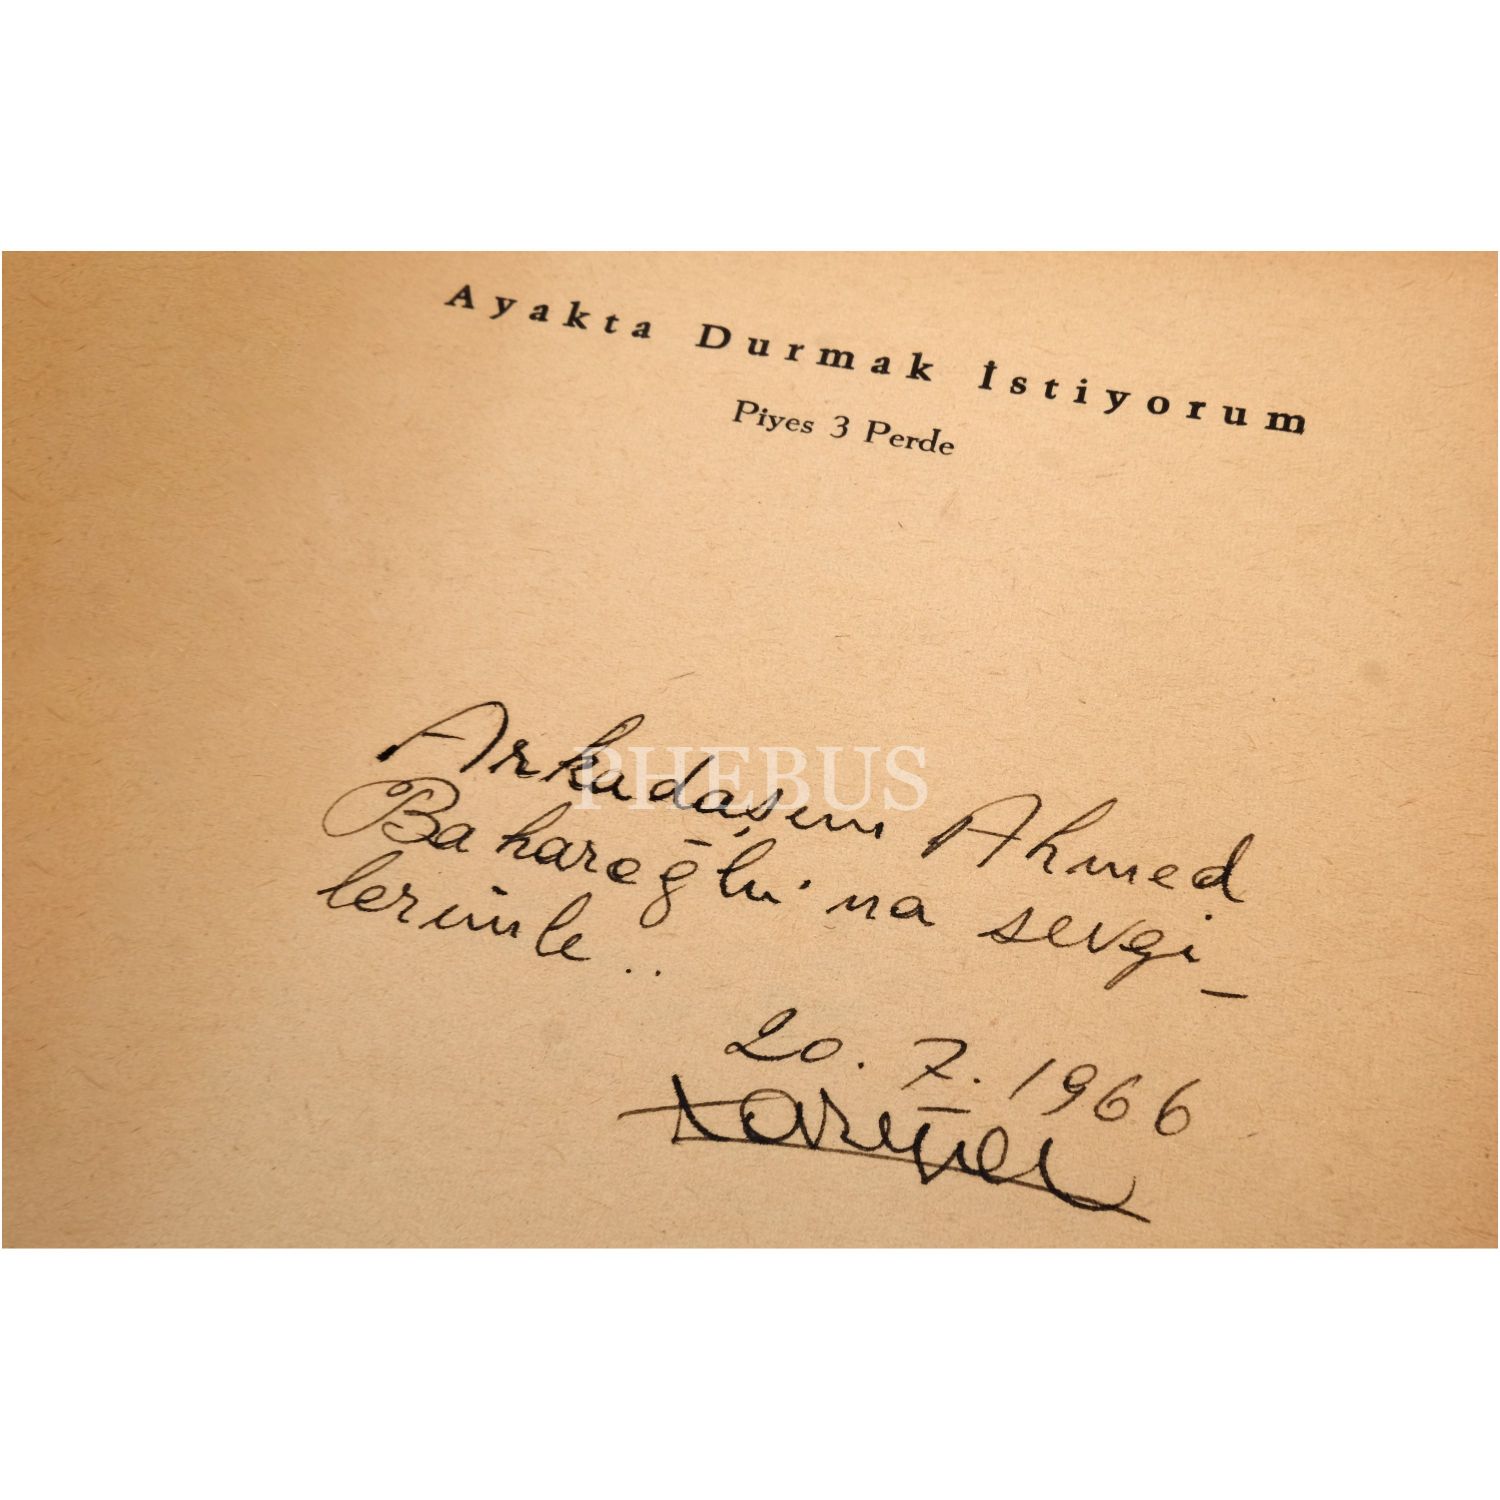 Ayakta Durmak İstiyorum
Piyes 3 Perde
PHEBUS
Arkadaşım Ahmed
Baharoğlu'na sevgi-
lerimle..
20.7.1966